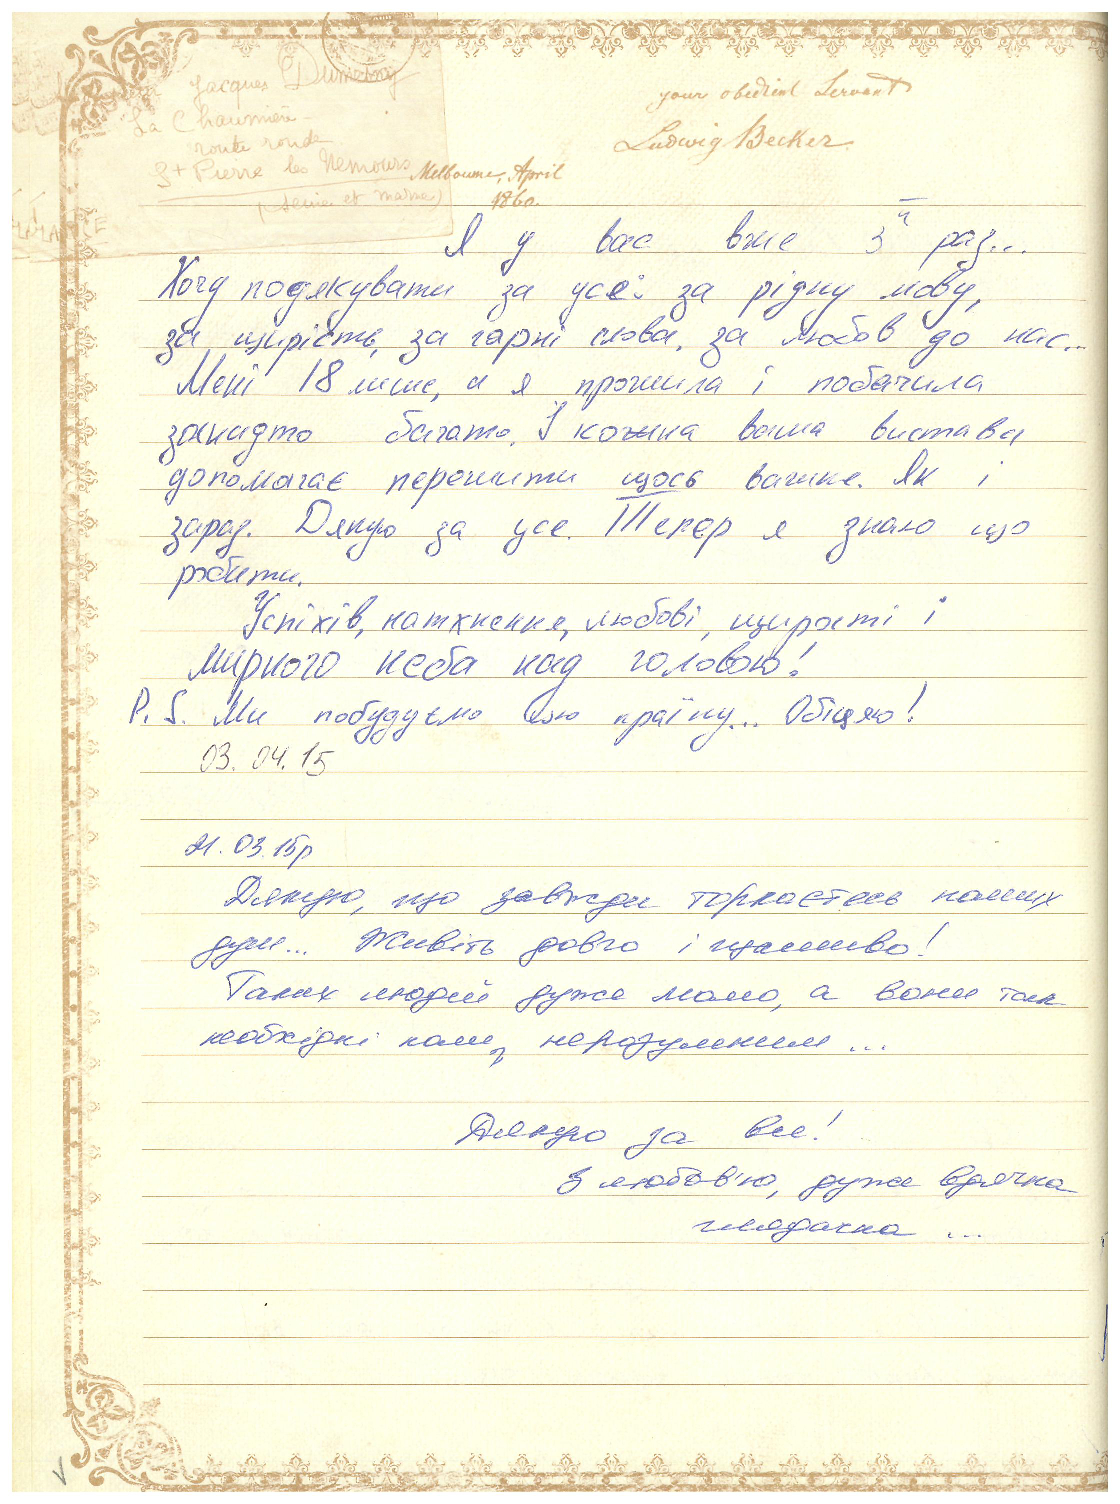 Jacques Dumesny
La Chaumière -
route ronde
St Pierre les Nemours
(Seine et Marne)
FRANCE
your obedient Servant
Ludwig Becker
Melbourne, April
1860.
Я у вас вже 3й раз...
Хочу подякувати за усе: за рідну мову,
за щирість, за гарні слова, за любов до нас...
Мені 18 лише, а я прожила і побачила
занадто багато. І кожна ваша вистава
допомагає пережити щось важке. Як і
зараз. Дякую за усе. Тепер я знаю що
робити.
Успіхів, натхнення, любові, щирості і
мирного неба над головою!
P.S. Ми побудуємо цю країну... Обіцяю!
03.04.15
21.03.15р
Дякую, що завжди торкаєтесь наших
душ... Живіть довго і щасливо!
Таких людей дуже мало, а вони так
необхідні нам, нерозумним ...
Дякую за все!
З любов'ю, дуже вдячна
глядачка ...